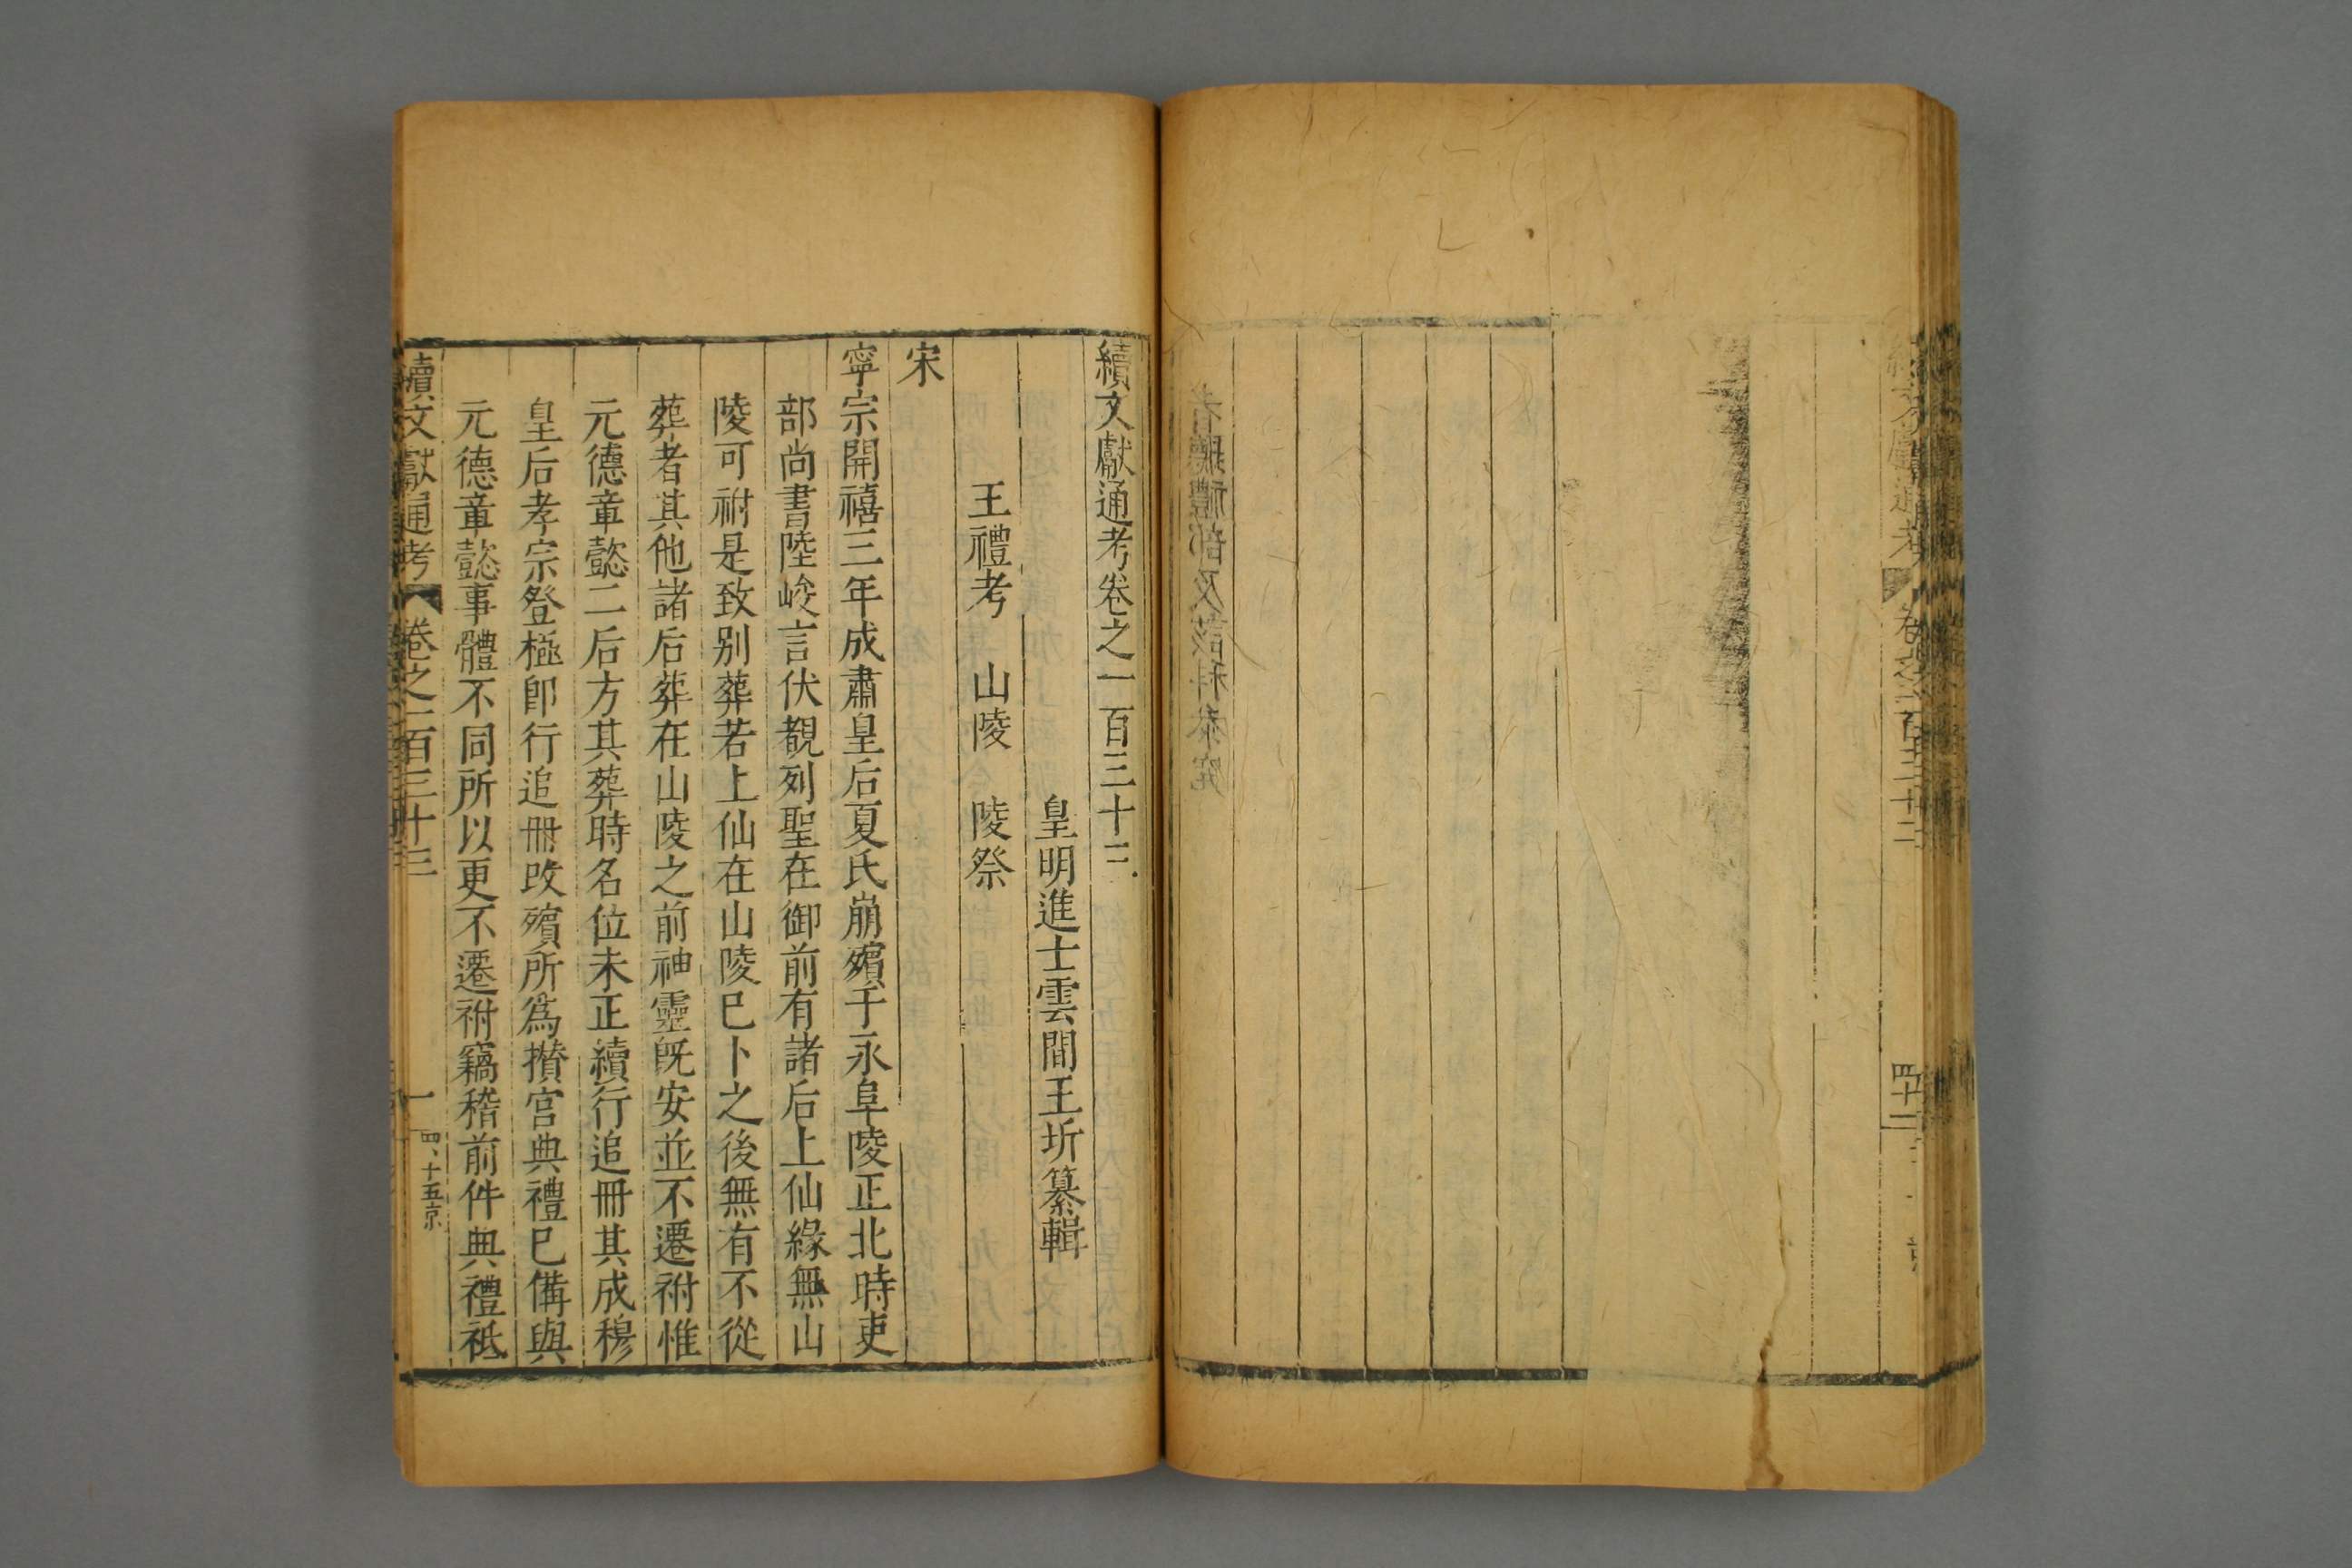 續文獻通考卷之一百三十三
皇明進士雲間王圻纂輯
王禮考 山陵 陵祭
宋
寧宗開禧三年成肅皇后夏氏崩殯于永阜陵正北時吏
部尚書陸峻言伏覩列聖在御前有諸后上仙緣無山
陵可祔是致别葬若上仙在山陵已卜之後無有不從
葬者其他諸后葬在山陵之前神靈旣安並不遷祔惟
元德章懿二后方其葬時名位未正續行追冊其成穆
皇后孝宗登極卽行追冊改殯所爲攢宮典禮已備與
元德章懿事體不同所以更不遷祔竊稽前件典禮祗
續文獻通考 卷之一百三十三 一 四、十五京